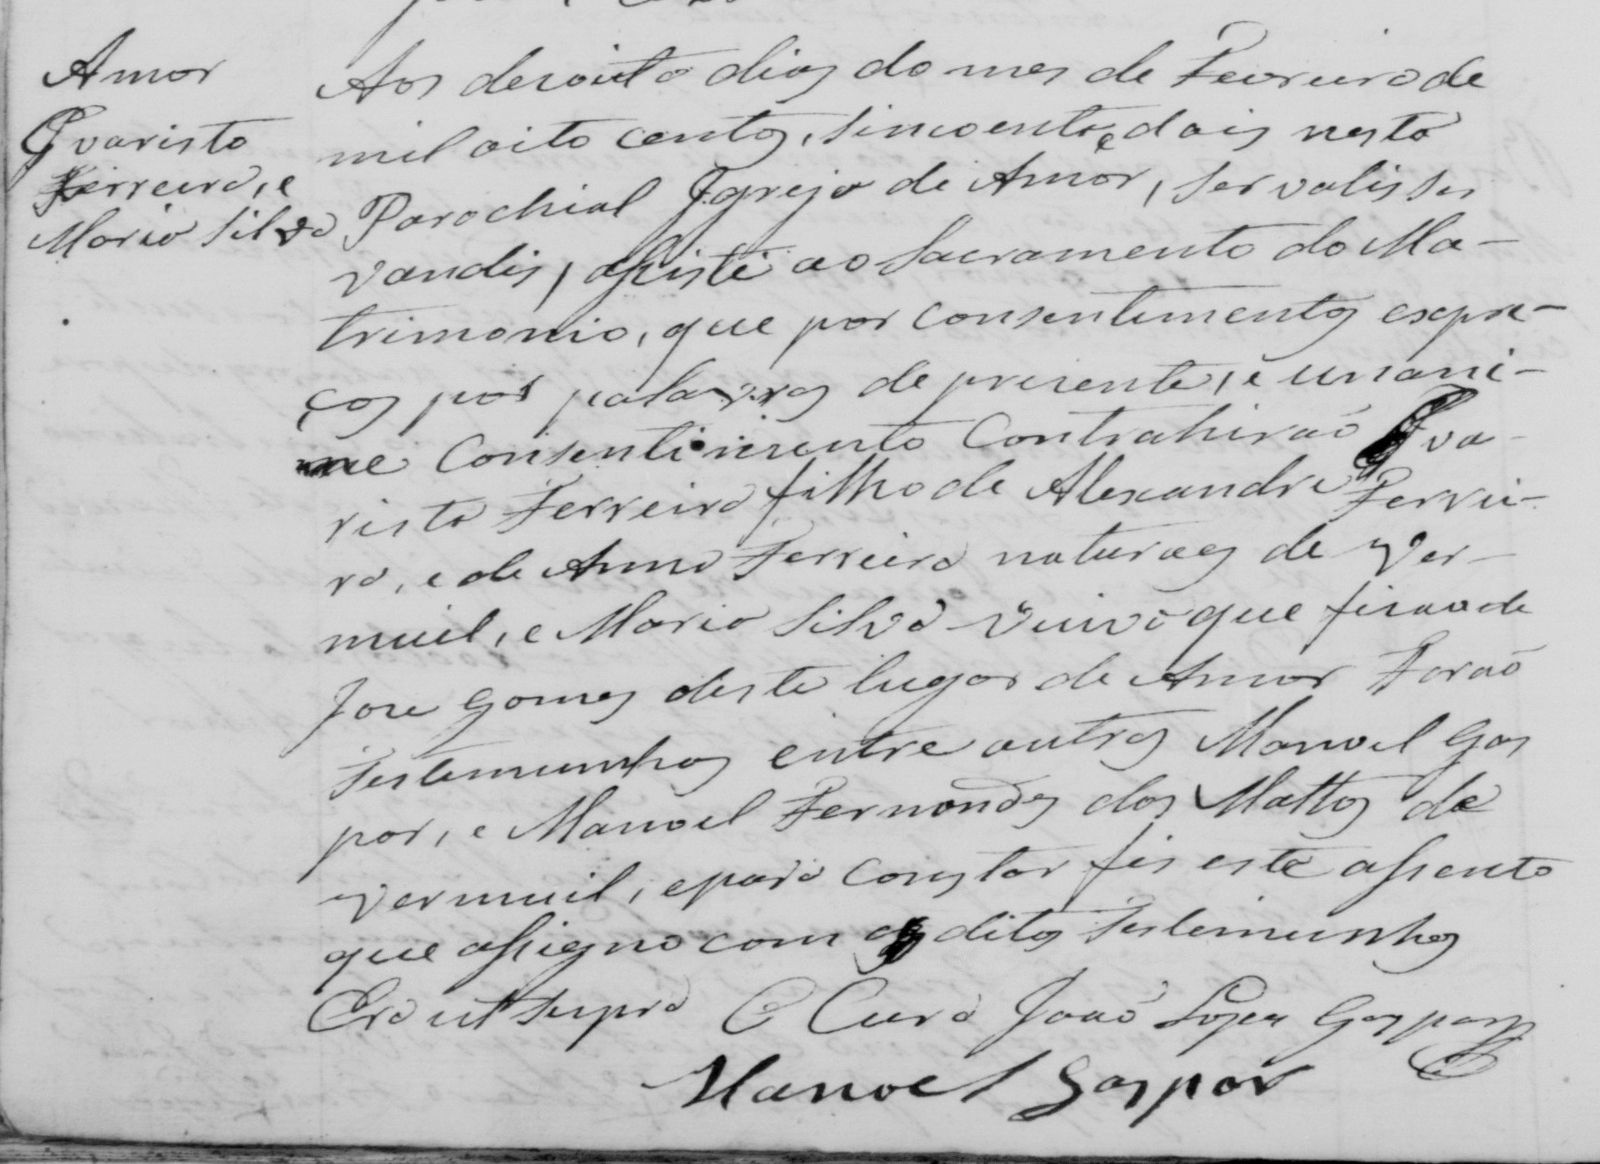 Amor
Evaristo
Ferreira, e
Maria Silva
Aos desoito dias do mes de Fevreiro de
mil oito centos, sincoenta e dois nesta
Parochial Igreja de Amor, servatis ser
vandis, assisti ao Sacramento do Ma-
trimonio, que por consentimentos expre-
ços por palavras de presente, e unani-
me Consentimento Contrahiraõ Eva-
risto Ferreira filho de Alexandre Ferrei-
ra, e de Anna Ferreira naturaes de Ver-
muil, e Maria Silva viuva que ficou de
Jose Gomes deste lugar de Amor Foraõ
testemunhas entre outros Manoel Gas
par, e Manoel Fernandes dos Mattos de
Vermuil, e para constar fis este assento
que assigno com as ditas testemunhas
Era ut supra O Cura Joaõ Lopes Gaspar
Manoel Gaspar